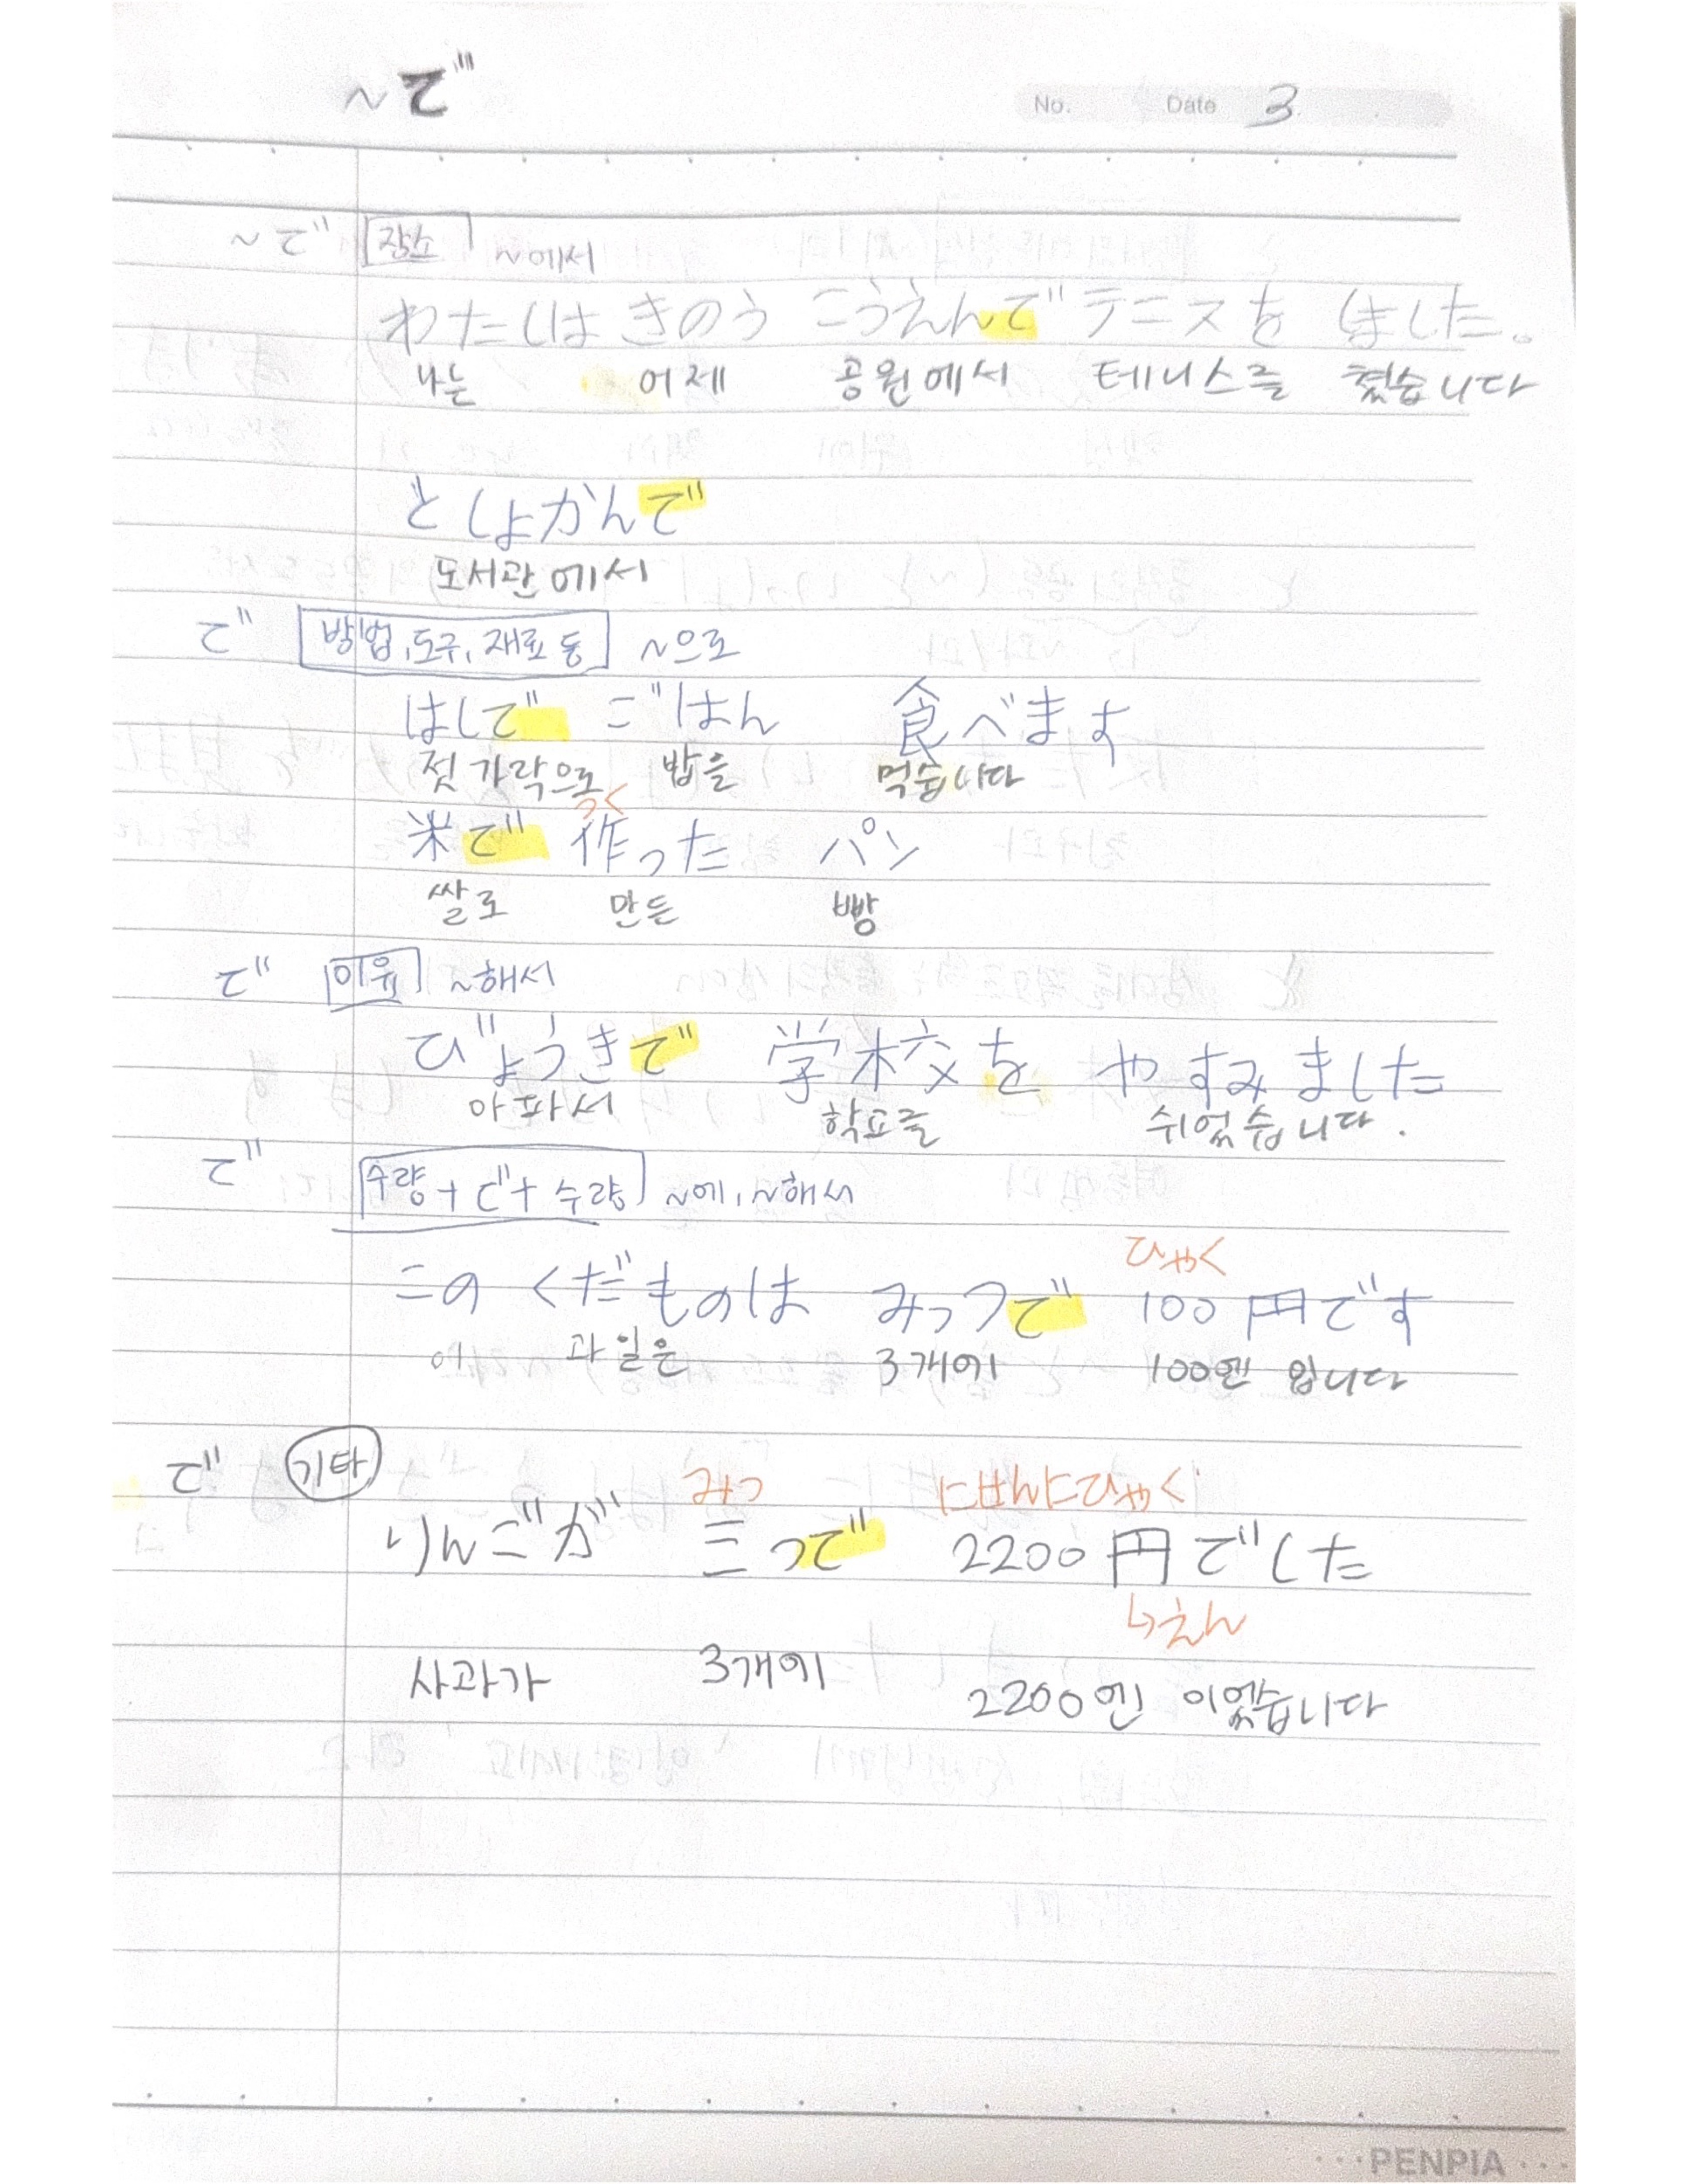 ~で
No. Date 3
~で 장소 ~에서
わたしは きのう こうえんで テニスを しました。
나는 어제 공원에서 테니스를 쳤습니다
としょかんで
도서관에서
で 방법, 도구, 재료 등 ~으로
はしで ごはん 食べます
젓가락으로 밥을 먹습니다
つく
米で 作った パン
쌀로 만든 빵
で 이유 ~해서
びょうきで 学校を やすみました
아파서 학교를 쉬었습니다.
で 수량+で+수량 ~에, ~해서
ひゃく
この くだものは みっつで 100円です
이 과일은 3개에 100엔 입니다
で 기타
みっ にせんにひゃく
りんごが 三つで 2200円でした
↳えん
사과가 3개에 2200엔 이었습니다
PENPIA